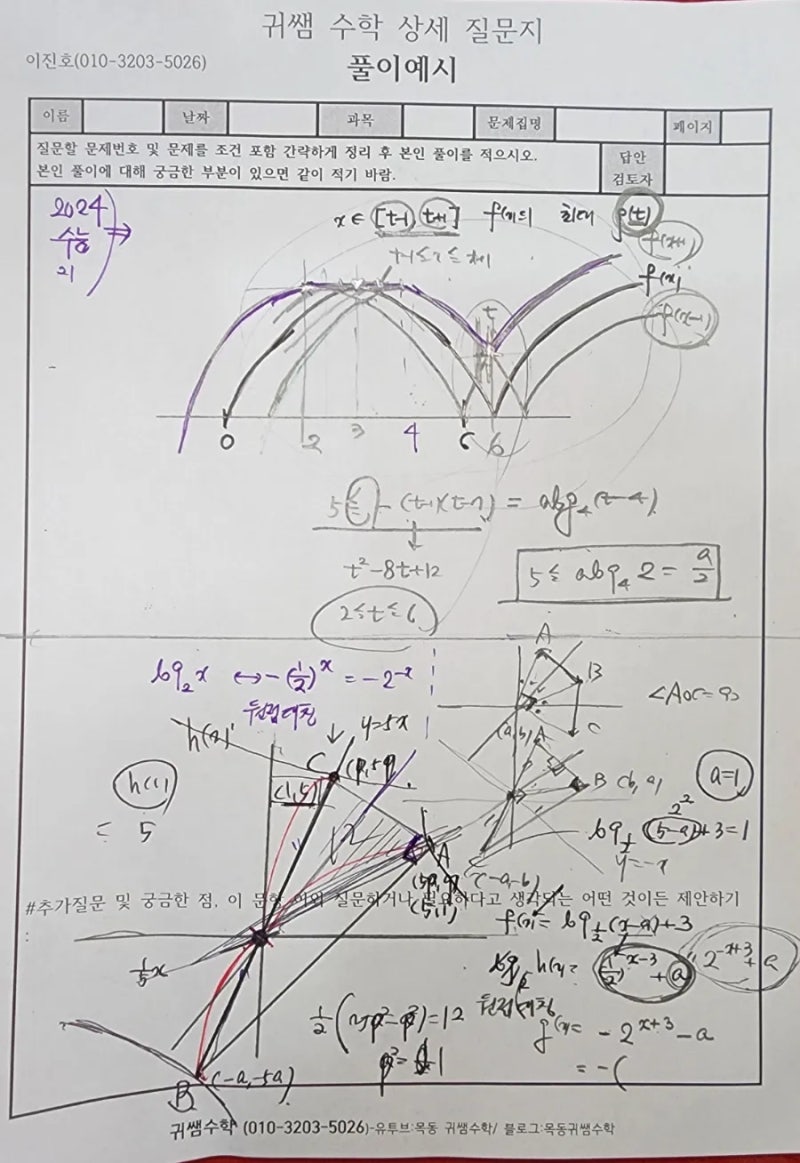 귀쌤 수학 상세 질문지
이진호(010-3203-5026)
풀이예시
이름 날짜 과목 문제집명 페이지
질문할 문제번호 및 문제를 조건 포함 간략하게 정리 후 본인 풀이를 적으시오.
본인 풀이에 대해 궁금한 부분이 있으면 같이 적기 바람.
답안
검토자
2024
수능
21
x ∈ [t-1, t+1] f(x)의 최대 g(t)
f(x+1)
f(x)
f(x-1)
t
0 2 3 4 6
5 ≤ -(t-1)(t-7) = alog₄(t-4)
t²-8t+12
2≤t≤6
5 ≤ alog₄2 = a/2
log₂x ↔ -(1/2)^x = -2^-x
원점대칭
h(x)
y=5x
C
(1,5)
h(1)
= 5
A
B
C
∠AOC=90
(a,b) A
B (b, a)
(-a,-b)
a=1
2²
log_{1/2}(5-a)+3=1
y=-x
12
A
(5,1)
#추가질문 및 궁금한 점, 이 문항 이외 질문하거나 필요하다고 생각되는 어떤 것이든 제안하기
:
f(x)= log_{1/2}(x-a)+3
h(x)= (1/2)^{x-3}+a
2^{-x+3}+a
원점대칭
g(x)= -2^{x+3}-a
= -(
1/5x
B
(-a,-5a)
귀쌤수학 (010-3203-5026)-유투브:목동 귀쌤수학/ 블로그:목동귀쌤수학